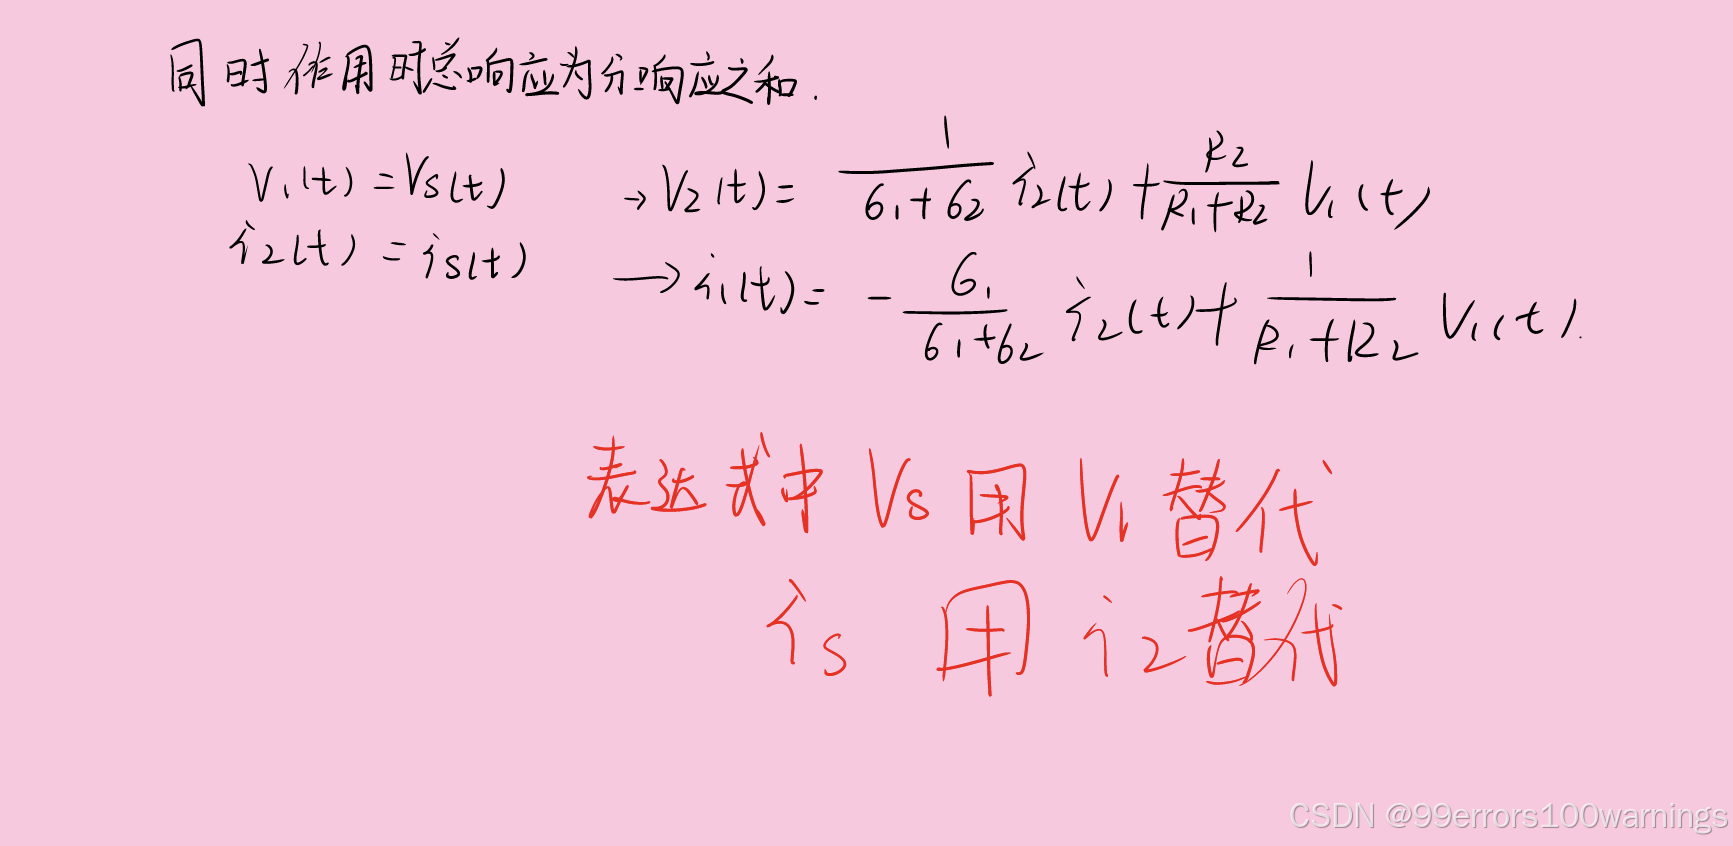 同时作用时总响应为分响应之和.
V₁(t) = Vs(t) → V₂(t) = 1/(G₁+G₂) i₂(t) + R₂/(R₁+R₂) V₁(t)
i₂(t) = is(t) → i₁(t) = - G₁/(G₁+G₂) i₂(t) + 1/(R₁+R₂) V₁(t).
表达式中 Vs 用 V₁ 替代
is 用 i₂ 替代
CSDN @99errors100warnings